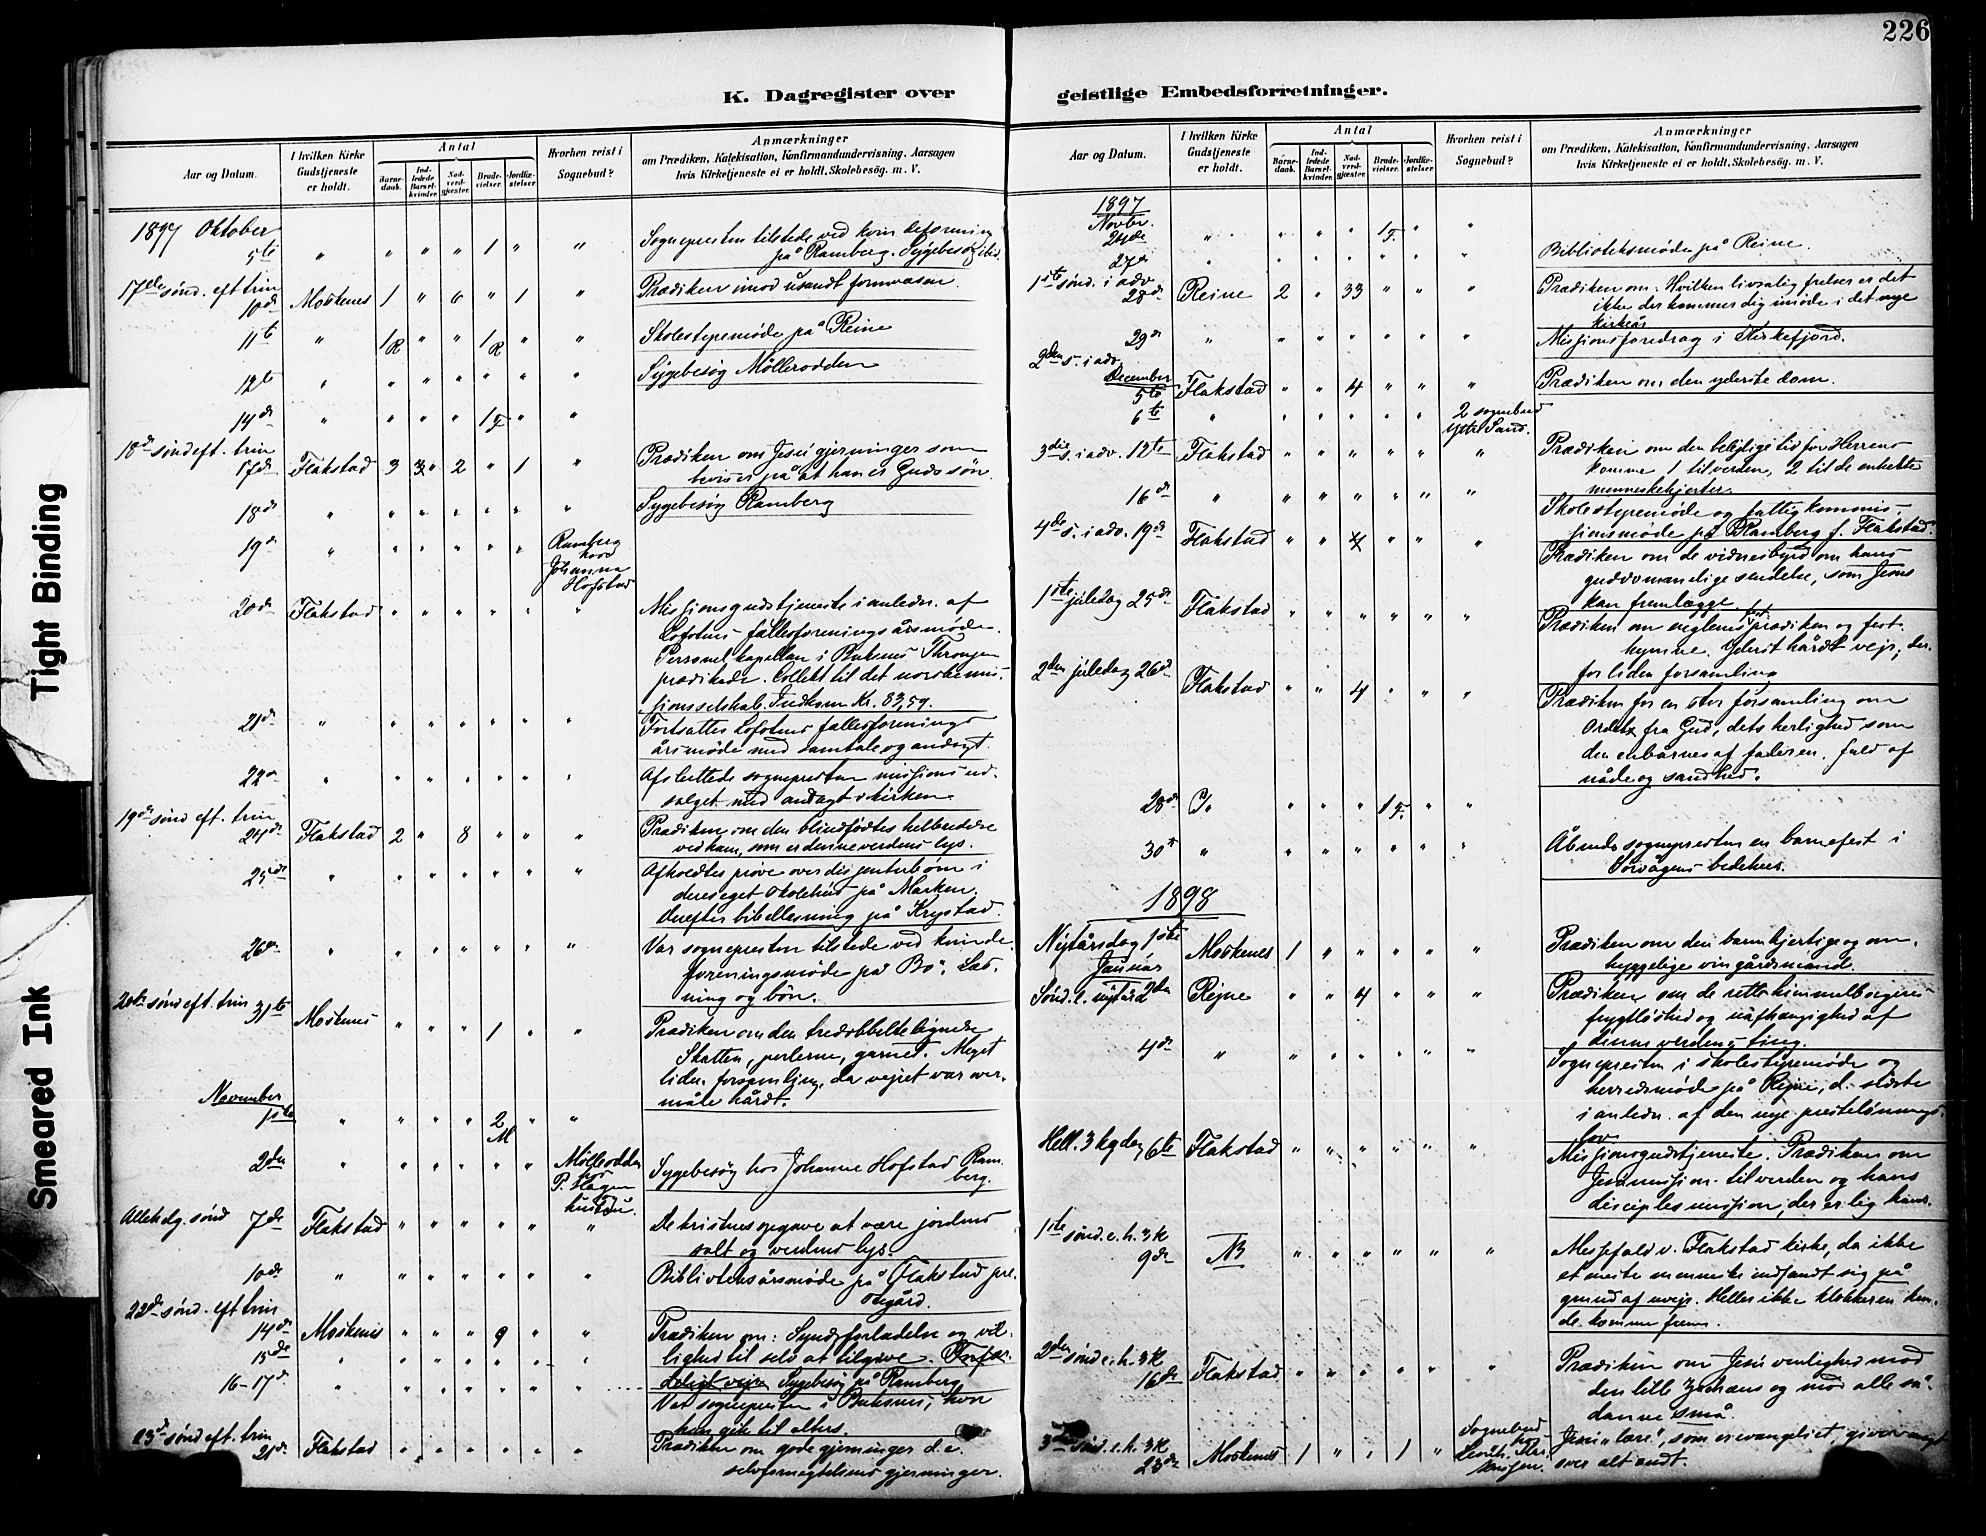 226
K. Dagregister over geistlige Embedsforretninger.
Aar og Datum.
I hvilken Kirke Gudstjeneste er holdt.
Antal
Barnedaab.
Indledede Barselkvinder.
Nadverdgjæster.
Brudevielser.
Jordfæstelser.
Hvorhen reist i Sognebud?
Anmærkninger
om Prædiken, Katekisation, Konfirmandundervisning, Aarsagen
hvis Kirketjeneste ei er holdt, Skolebesøg. m. V.
1897 Oktober
5te " " " " 1 " " Sognepresten tilstede ved kvindeforening
på Ramberg. Sygebesøg ibid.
17de sønd. eft trin
10de Moskenes 1 " 6 " 1 " Prædiken imod usandt formvæsen.
11te " 1R " " 1R " " Skolestyremøde på Reine
12te " " " " " " " Sygebesøg Møllerodden
14de " " " " 1F " "
18de sønd eft. trin
17de Flakstad 3 3 " 2 " 1 " Prædiken om Jesu gjerninger som
beviser på at han er Guds søn.
18de " " " " " " " Sygebesøg Ramberg
19de " " " " " " Ramberg
hos
Johanna
Hofstad
20de Flakstad " " " " " " Missionsgudstjeneste i anledn. af
Lofotens fællesforenings årsmøde.
Personelkapellan i Buksnes
prædikede. Collekt til det norske mis-
sionsselskab. Indkom Kr. 83,59.
21de " " " " " " " Fortsattes Lofotens fællesforenings
årsmøde med samtale og andagt.
22de " " " " " " " Afsluttede sognepresten missionsud-
salget med andagt i kirken.
19de sønd eft. trin
24de Flakstad 2 " 8 " " " Prædiken om den blindfødtes helbredelse
ved ham, som er denne verdens lys.
25de " " " " " " " Afholdtes prøve over dissenterbørn i
deres eget skolehus på Marken.
Derefter bibellæsning på Krystad.
26de " " " " " " " Var sognepresten tilstede ved kvinde-
foreningsmøde på Bø. Læs-
ning og bøn.
20de sønd eft. trin 31te
Moskenes " " " 1 " " Prædiken om den tredobbelte lignelse
Skatten, perlerne, garnet. Meget
liden forsamling, da vejret var over-
måte hårdt.
November
1ste " " " " 2M " "
2den " " " " " " Møllerodden
hos
P. Hagen
hustru. Sygebesøg hos Johanne Hofstad Ram-
berg.
Alleh. dg. sønd 7de Flakstad " " " " " " De kristnes opgave at være jordens
salt og verdens lys.
10de " " " " " " " Biblioteksårsmøde på Flakstad pre-
stegård.
22de sønd. eft trin
14de Moskenes " " " 9 " " Prædiken om: Syndsforladelse og vil-
lighed til selv at tilgive.
15de " " " " " " " Sygebesøg på Ramberg
16-17de " " " " " " " Var sognepresten i Buksnes, hvor
han gik til alters.
23de sønd eft. trin
21de Flakstad " " " " " " Prædiken om gode gjerninger d.e.
selvfornægtelsens gjerninger.
Aar og Datum.
I hvilken Kirke Gudstjeneste er holdt.
Antal
Barnedaab.
Indledede Barselkvinder.
Nadverdgjæster.
Brudevielser.
Jordfæstelser.
Hvorhen reist i Sognebud?
Anmærkninger
om Prædiken, Katekisation, Konfirmandundervisning, Aarsagen
hvis Kirketjeneste ei er holdt, Skolebesøg. m. V.
1897
Novbr.
24de " " " " 1F. " "
27de " " " " " " " Biblioteksmøde på Reine.
1ste sønd. i adv.
28de Reine 2 " 33 " " " Prædiken om: Hvilken livsalig frelser er det
ikke der kommer dig imøde i det nye
kirkeår
29de " " " " " " " Missionsforedrag i Kirkefjord.
2den s. i adv.
December
5te Flakstad " " 4 " " " Prædiken om den yderste dom.
6te " " " " " " 2 sognebud
Ytre Sand.
3die s. i adv. 12te Flakstad " " " " " " Prædiken om den belejlige tid for Herrens
komme 1 til verden, 2 til de enkelte
menneskehjerter.
16de " " " " " " " Skolestyremøde og fattigkommis-
sionsmøde på Ramberg f. Flakstad.
4de s. i adv. 19de Flakstad " " 4 " " " Prædiken om de vidnesbyrd om hans
guddommelige sendelse, som Jesus
kan fremlægge.
1ste juledag 25de Flakstad " " " " " " Prædiken om englenes prædiken og fest-
hymne. Yderst hårdt vejr, der-
for liden forsamling
2den juledag 26de
Flakstad " " 4 " " " Prædiken for en stor forsamling om
Ordets fra Gud, dets herlighed som
den enbårnes af faderen, fuld af
nåde og sandhed.
28de " " " 1F. " "
30te " " " " " " " Åbnede sognepresten en barnefest i
Sørvågens bedehus.
1898
Nytårsdag 1ste Moskenes 1 " " " " " Prædiken om den barmhjertige og om-
hyggelige vingårdsmand.
Januar
Sønd. e. nytår 2den Rejne " " 4 " " " Prædiken om de rette himmelborgeres
frygtløshed og uafhængighed af
denne verdens ting.
4de " " " " " " " Sognepresten i skolestyremøde og
herredsmøde på Rejne, d. sidste
i anledn. af den nye prestelønnings-
lov.
Hell. 3 kg dag 6te Flakstad " " " " " " Missionsgudstjeneste. Prædiken om
Jesu mission til verden og hans
disciples mission, der er lig hans.
1ste sønd. e. h. 3 K
9de NB " " " " " " Messefald v. Flakstad kirke, da ikke
et eneste menneske indfandt sig på
grund af uvejr. Heller ikke klokkeren kun-
de komme frem.
2den sønd e. h. 3K
16de Flakstad " " " " " " Prædiken om Jesu venlighed mod
den lille Zachæus og mod alle så-
danne små.
3die sønd. e. h. 3K
23de Moskenes 1 " " 1 " Sognebud
hos Jesu "lære", som er evangeliet, giver magt
over alt andt.
Tight Binding
Smeared Ink